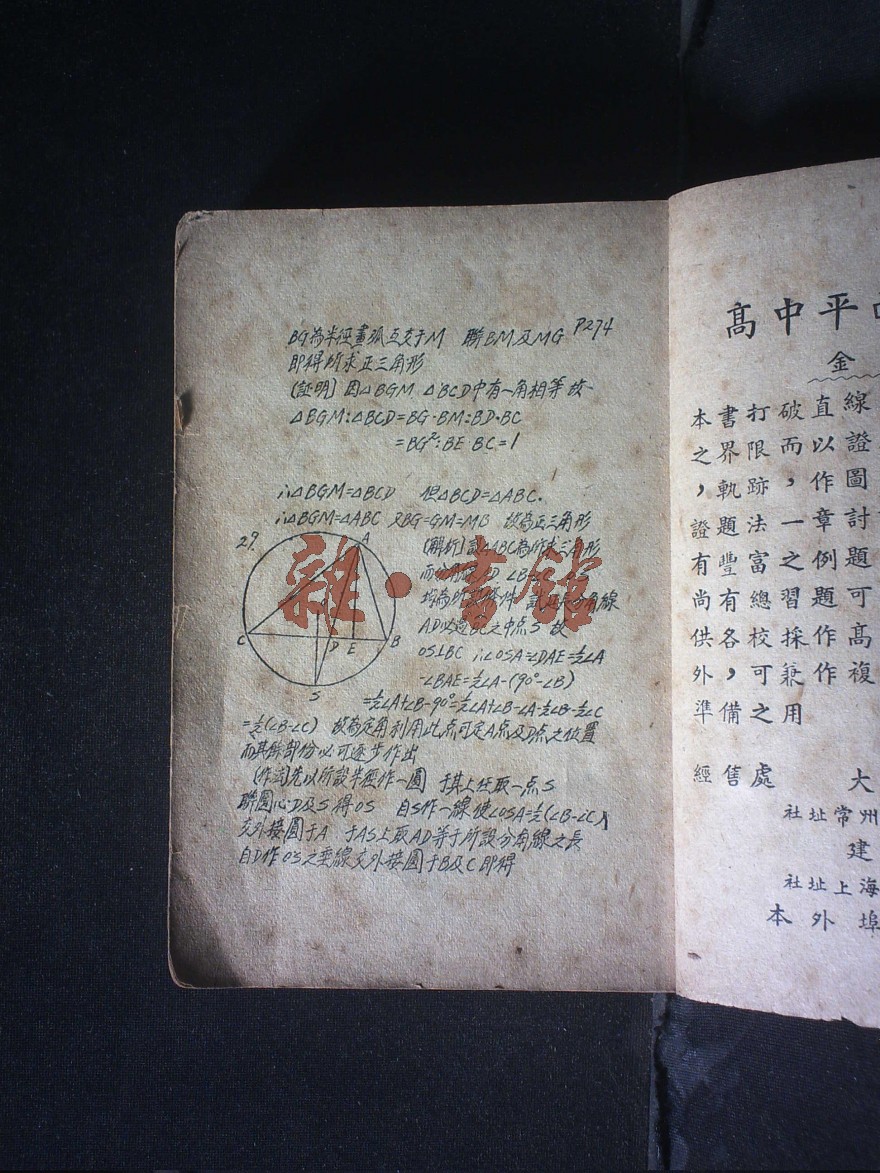 P274
BG為半徑畫弧互交于M 聯BM及MG
即得所求正三角形
(証明) 因△BGM △BCD中有一角相等故
△BGM:△BCD=BG·BM:BD·BC
=BG²:BE·BC=1
∴△BGM=△BCD 但△BCD=△ABC.
∴△BGM=△ABC 又BG=GM=MB 故為正三角形
29.
A
C
D
E
B
S
(解析)設△ABC為所求三角形
AD以遇BC之中点S 故
OS⊥BC ∴∠OSA=∠DAE=½∠A
-∠BAE=½∠A-(90°-∠B)
=½∠A+∠B-90°=½∠A+∠B-½∠A-½∠B-½∠C
=½(∠B-∠C) 故為定角利用此点可定A点及D点之位置
而其餘部份必可逐步作出
(作法)先以所設半徑作一圓 于其上任取一点S
聯圓心O及S得OS 自S作一線使∠OSA=½(∠B-∠C)
交外接圓于A 于AS上取AD等于所設分角線之長
自D作OS之垂線交外接圓于B及C即得
雜·書館
高中平
金
本書打破直線
之界限而以證
，軌跡，作圖
證題法一章討
有豐富之例題
尚有總習題可
供各校採作高
外，可兼作複
準備之用
經售處 大
社址常州
建
社址上海
本外埠